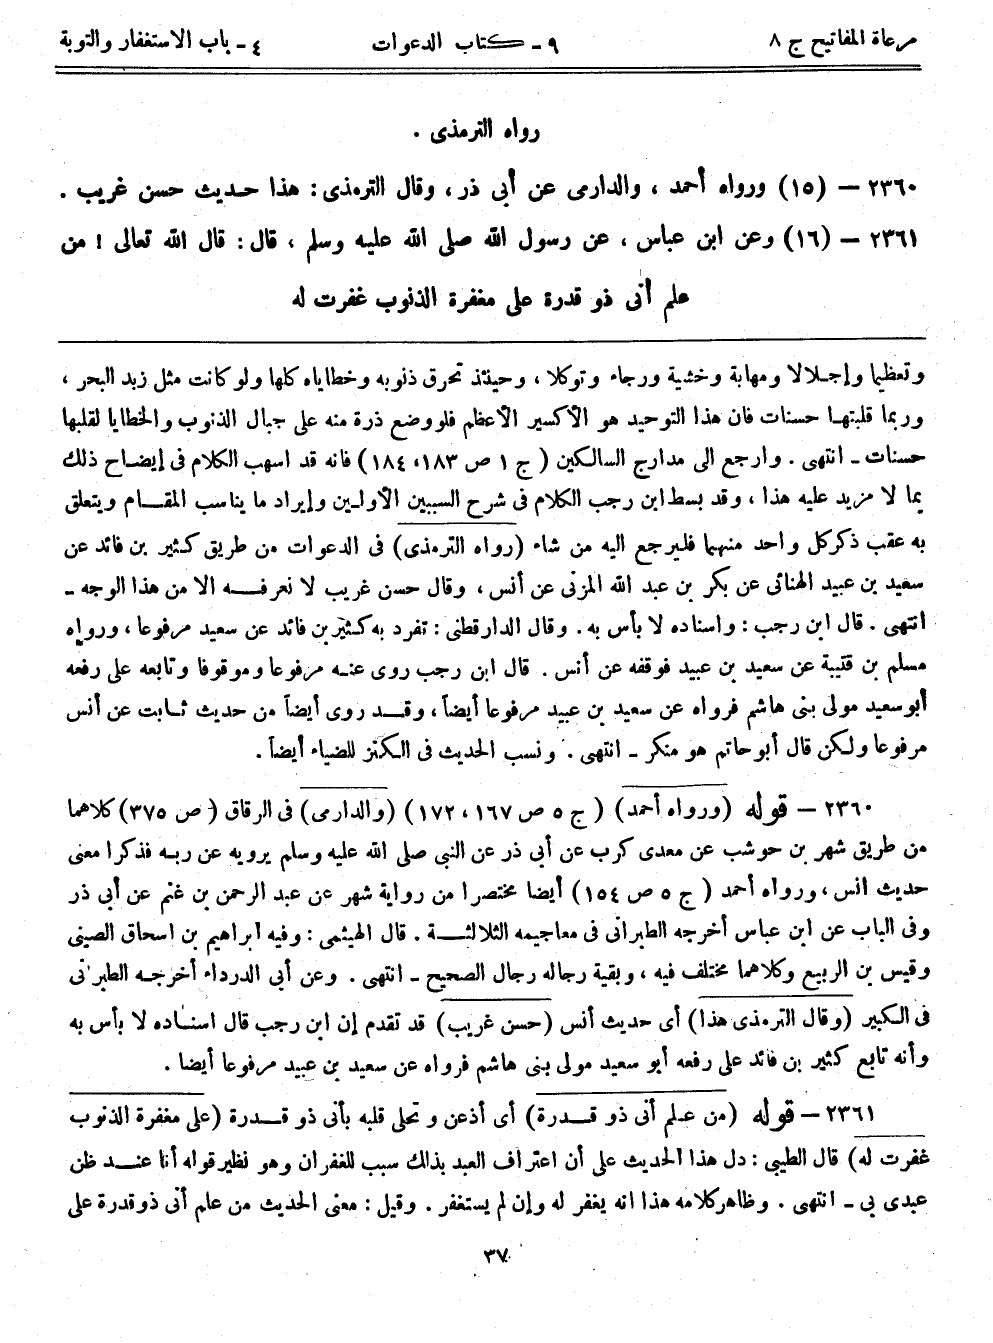 مرعاة المفاتيح ج ٨
٩ ـ كتاب الدعوات
٤ ـ باب الاستغفار والتوبة
رواه الترمذى .
٢٣٦٠ – (١٥) ورواه أحمد ، والدارمى عن أبى ذر ، وقال الترمذى : هذا حديث حسن غريب .
٢٣٦١ – (١٦) وعن ابن عباس ، عن رسول الله صلى الله عليه وسلم ، قال : قال الله تعالى ! من
علم أنى ذو قدرة على مغفرة الذنوب غفرت له
وتعظيما وإجلالا ومهابة وخشية ورجاء وتوكلا ، وحينئذ تحرق ذنوبه وخطاياه كلها ولو كانت مثل زبد البحر ،
وربما قلبتها حسنات فان هذا التوحيد هو الأكسير الأعظم فلو وضع ذرة منه على جبال الذنوب والخطايا لقلبها
حسنات ـ انتهى . وارجع الى مدارج السالكين ( ج ١ ص ١٨٣، ١٨٤ ) فانه قد اسهب الكلام فى إيضاح ذلك
بما لا مزيد عليه هذا ، وقد بسط ابن رجب الكلام فى شرح السببين الأولين وإيراد ما يناسب المقام ويتعلق
به عقب ذكر كل واحد منهما فليرجع اليه من شاء (رواه الترمذى) فى الدعوات من طريق كثير بن فائد عن
سعيد بن عبيد الهنائى عن بكر بن عبد الله المزنى عن أنس ، وقال حسن غريب لا نعرفه الا من هذا الوجه ـ
انتهى . قال ابن رجب : واسناده لا بأس به . وقال الدارقطنى : تفرد به كثير بن فائد عن سعيد مرفوعا ، ورواه
مسلم بن قتيبة عن سعيد بن عبيد فوقفه عن أنس . قال ابن رجب روى عنه مرفوعا وموقوفا وتابعه على رفعه
أبو سعيد مولى بنى هاشم فرواه عن سعيد بن عبيد مرفوعا أيضاً ، وقد روى أيضاً من حديث ثابت عن أنس
مرفوعا ولكن قال أبو حاتم هو منكر ـ انتهى . ونسب الحديث فى الكنز للضياء أيضاً .
٢٣٦٠ – قوله (ورواه أحمد) ( ج ٥ ص ١٦٧ ، ١٧٢ ) (والدارمى) فى الرقاق ( ص ٣٧٥) كلاهما
من طريق شهر بن حوشب عن معدى كرب عن أبى ذر عن النبى صلى الله عليه وسلم يرويه عن ربه فذكرا معنى
حديث انس ، ورواه أحمد ( ج ٥ ص ١٥٤ ) أيضا مختصرا من رواية شهر عن عبد الرحمن بن غنم عن أبى ذر
وفى الباب عن ابن عباس أخرجه الطبرانى فى معاجيمه الثلاثة . قال الهيثمى : وفيه ابراهيم بن اسحاق الصينى
وقيس بن الربيع وكلاهما مختلف فيه ، وبقية رجاله رجال الصحيح ـ انتهى . وعن أبى الدرداء أخرجه الطبرانى
فى الكبير (وقال الترمذى هذا) أى حديث أنس (حسن غريب) قد تقدم إن ابن رجب قال اسناده لا بأس به
وأنه تابع كثير بن فائد على رفعه أبو سعيد مولى بنى هاشم فرواه عن سعيد بن عبيد مرفوعا أيضا .
٢٣٦١ – قوله (من علم أنى ذو قدرة) أى أذعن و تحلى قلبه بأنى ذو قدرة (على مغفرة الذنوب
غفرت له) قال الطيبى : دل هذا الحديث على أن اعتراف العبد بذلك سبب للغفران وهو نظير قوله أنا عند ظن
عبدى بى ـ انتهى . وظاهر كلامه هذا انه يغفر له وإن لم يستغفر . وقيل : معنى الحديث من علم أنى ذو قدرة على
٣٧